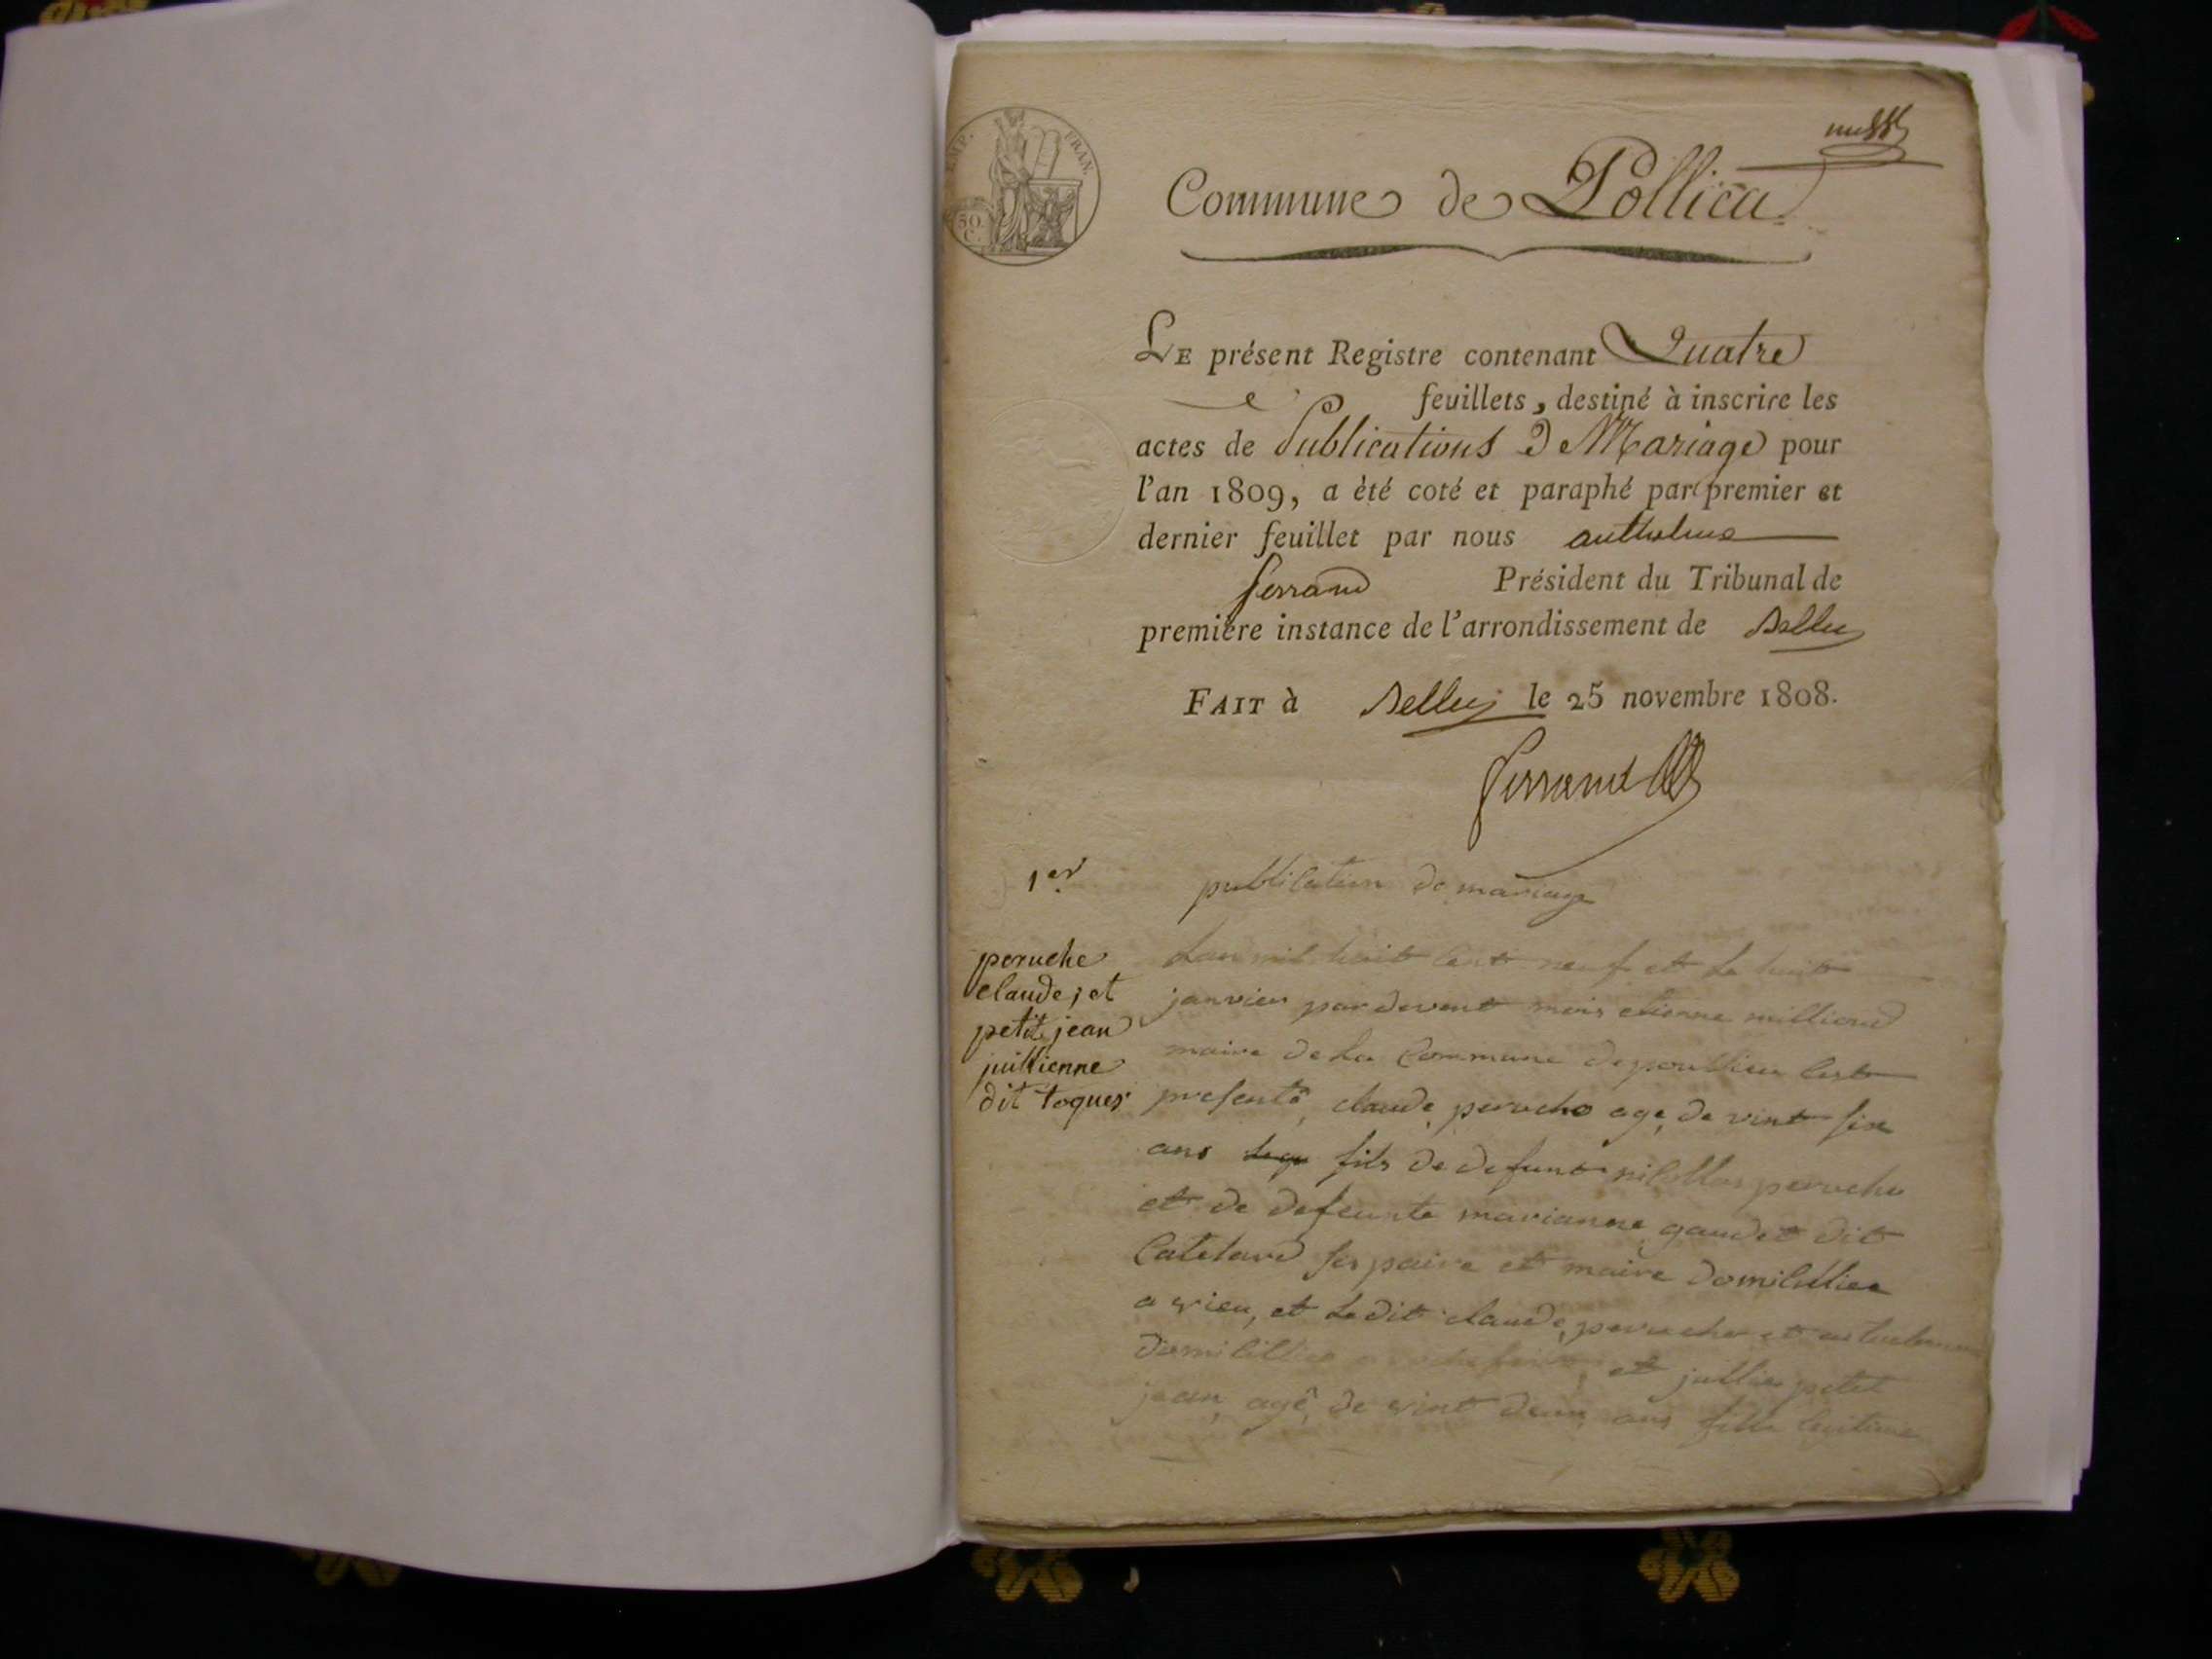 EMP. FRAN.
50 C.
Commune de Pollieu
LE présent Registre contenant Quatre
feuillets, destiné à inscrire les
actes de Publications De Mariage pour
l'an 1809, a èté coté et paraphé par premier et
dernier feuillet par nous anthelme
ferrand Président du Tribunal de
premiere instance de l'arrondissement de Belley
FAIT à Belley le 25 novembre 1808.
ferrand
1er publication de mariage
peruche
claude; et
petit jean
jullienne
dit toques
Lan mil huit cent neuf et le huit
janvier par devent mois etienne milliond
maire de la Commune de poullieu cest
presenté claude peruche age de vint six
ans fils de defunt nicollas peruche
et de defeunte marianne gaudet dit
Catelard ses paire et maire domicilliee
a vieu, et Ledit claude peruche et
domicillier et jullie petit
jean agé de vint deux ans fille legitime